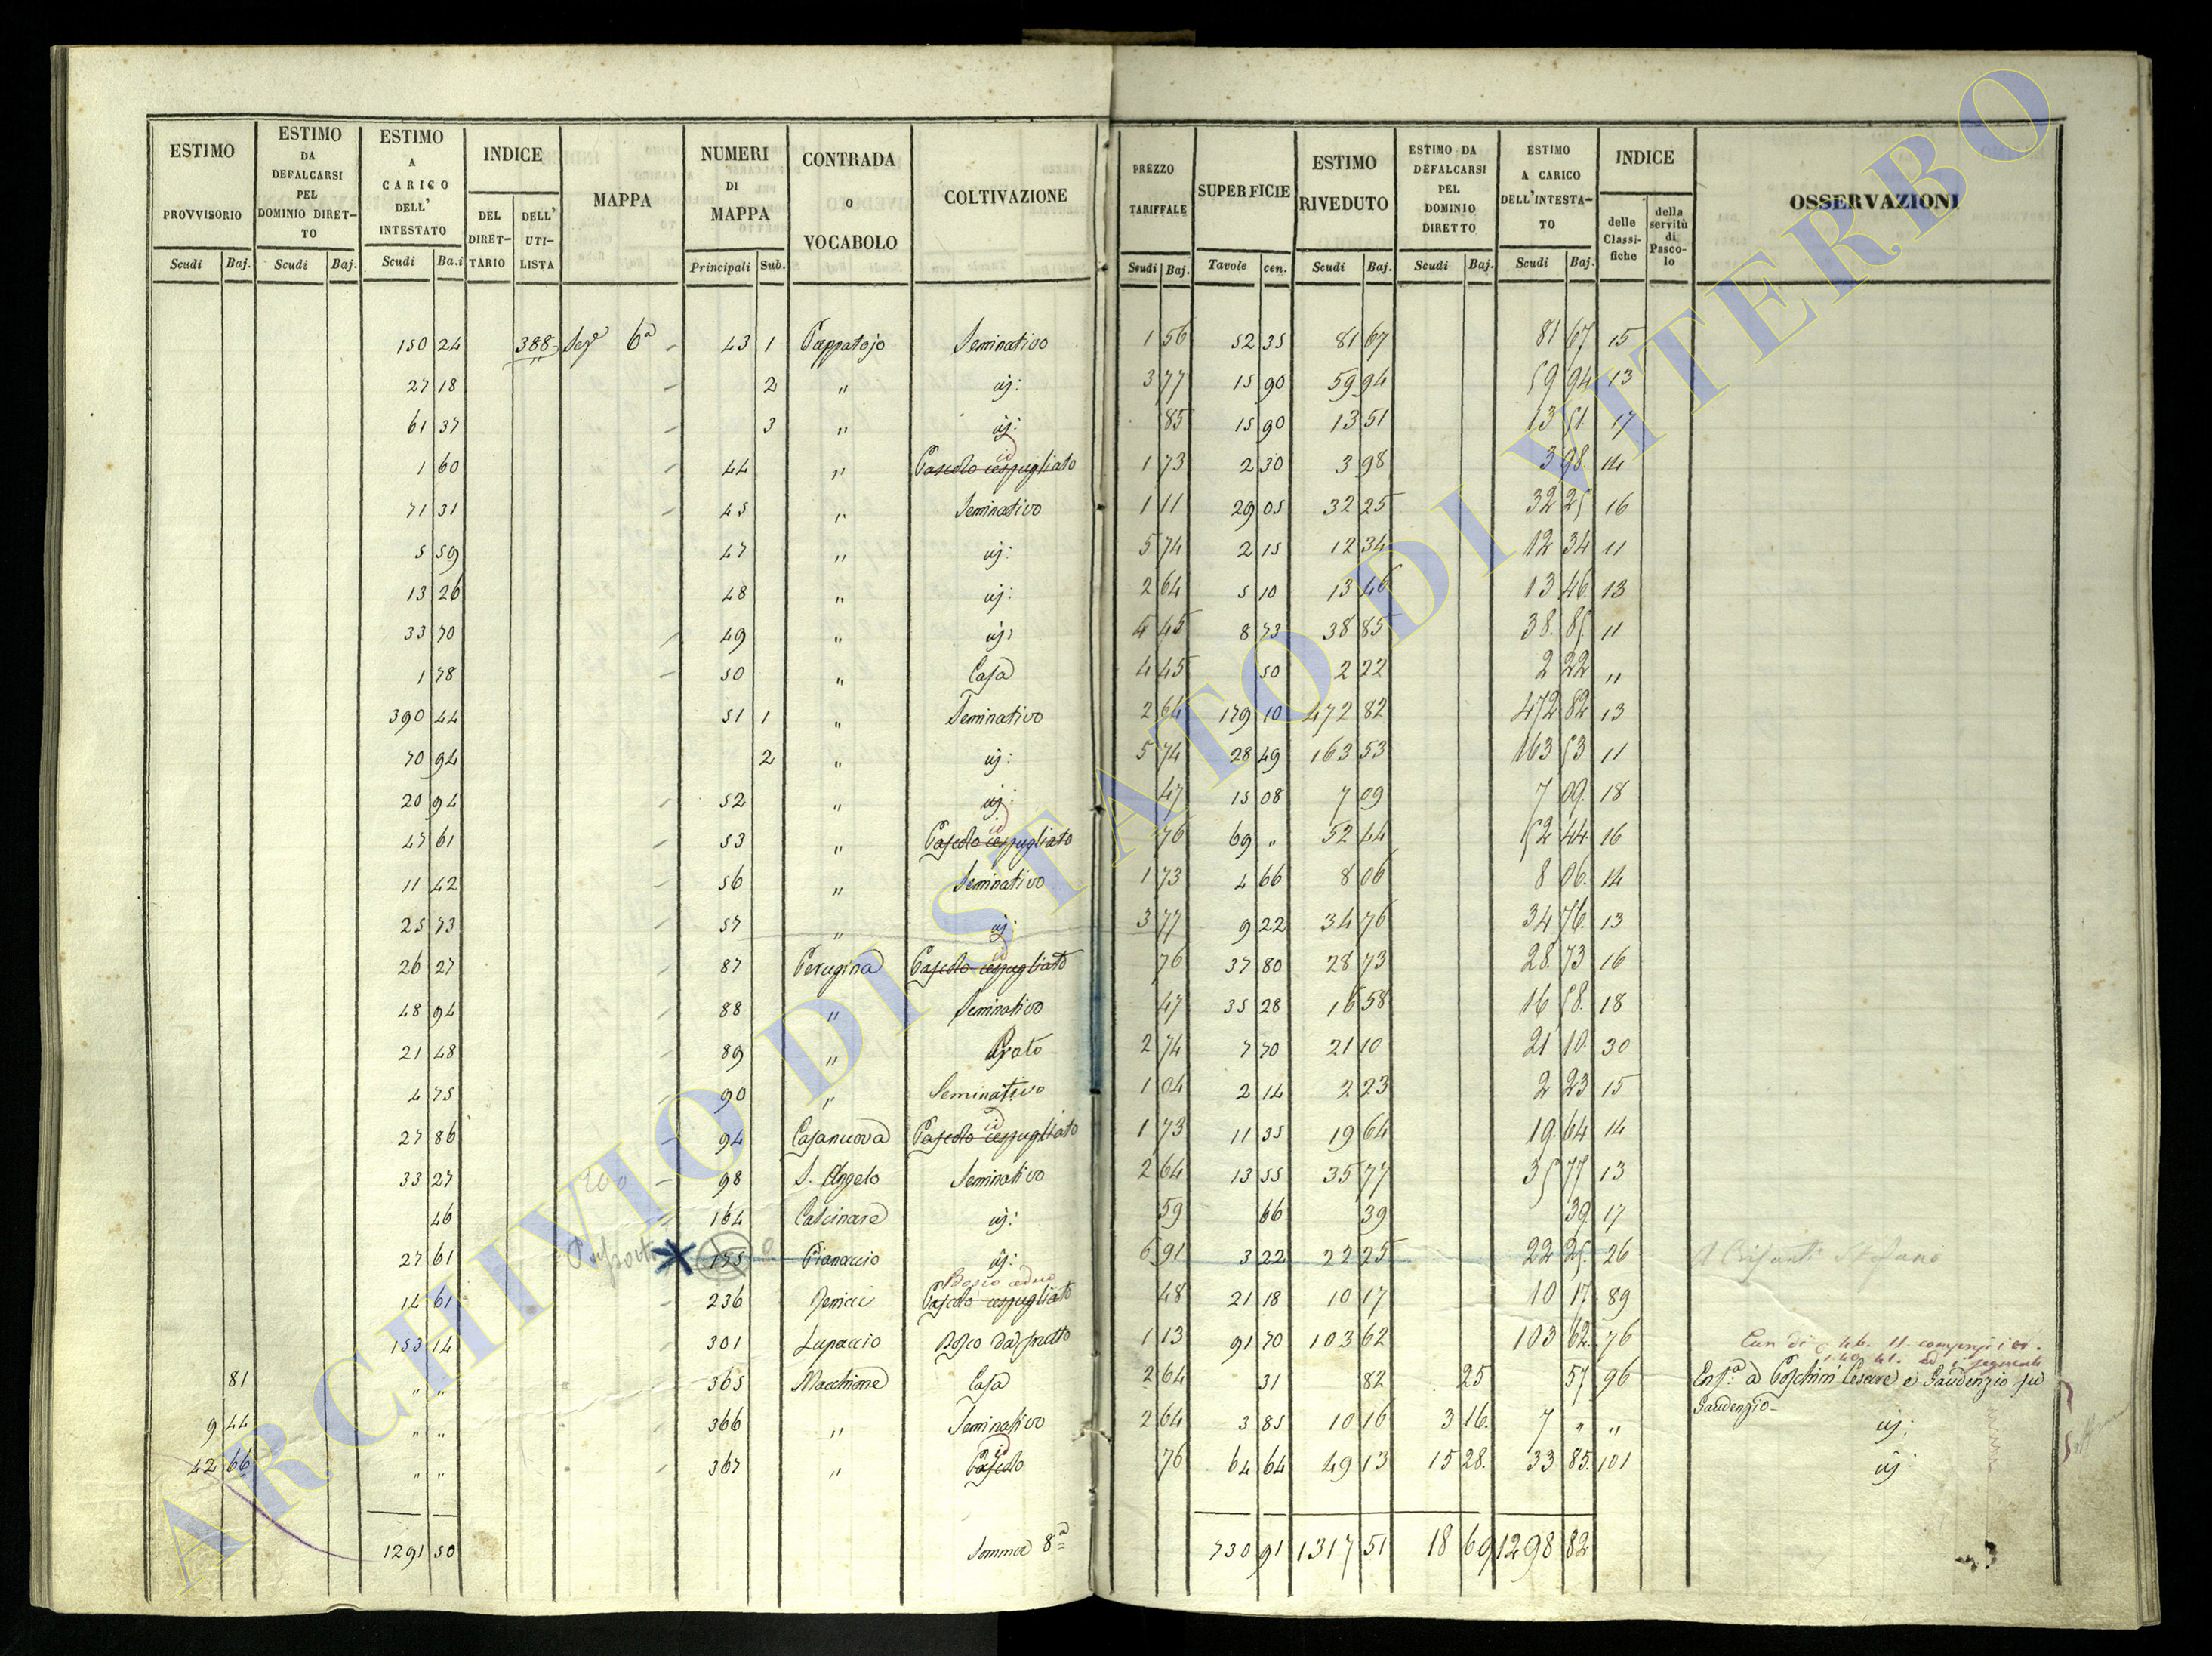 ESTIMO PROVVISORIO Scudi Baj.
ESTIMO DA DEFALCARSI PEL DOMINIO DIRETTO Scudi Baj.
ESTIMO A CARICO DELL' INTESTATO Scudi Ba.i
INDICE DEL DIRETTARIO DELL' UTILISTA
MAPPA
NUMERI DI MAPPA Principali Sub.
CONTRADA O VOCABOLO
COLTIVAZIONE
PREZZO TARIFFALE Scudi Baj.
SUPERFICIE Tavole cen.
ESTIMO RIVEDUTO Scudi Baj.
ESTIMO DA DEFALCARSI PEL DOMINIO DIRETTO Scudi Baj.
ESTIMO A CARICO DELL'INTESTATO Scudi Baj.
INDICE delle Classifiche della servitù di Pascolo
OSSERVAZIONI
150 24 388 Sez.e 6a 43 1 Pappatojo Seminativo 1 56 52 35 81 67 81 67 15
27 18 2 " iij: 3 77 15 90 59 94 59 94 13
61 37 3 " iij: 85 15 90 13 51 13 51 17
1 60 44 " Pascolo cespugliato id 1 73 2 30 3 98 3 98 14
71 31 45 " Seminativo 1 11 29 05 32 25 32 25 16
5 59 47 " iij: 5 74 2 15 12 34 12 34 11
13 26 48 " iij: 2 64 5 10 13 46 13 46 13
33 70 49 " iij: 4 45 8 73 38 85 38 85 11
1 78 50 " Casa 4 45 50 2 22 2 22 "
390 44 51 1 " Seminativo 2 64 179 10 472 82 472 82 13
70 94 2 " iij: 5 74 28 49 163 53 163 53 11
20 94 52 " iij: 47 15 08 7 09 7 09 18
47 61 53 " Pascolo cespugliato id 76 69 " 52 44 52 44 16
11 42 56 " Seminativo 1 73 4 66 8 06 8 06 14
25 73 57 " iij 3 77 9 22 34 76 34 76 13
26 27 87 Perugina Pascolo cespugliato id 76 37 80 28 73 28 73 16
48 94 88 " Seminativo 47 35 28 16 58 16 58 18
21 48 89 " Prato 2 74 7 70 21 10 21 10 30
4 75 90 " Seminativo 1 04 2 14 2 23 2 23 15
27 86 94 Casanuova Pascolo cespugliato id 1 73 11 35 19 64 19 64 14
33 27 200 98 S. Angelo Seminativo 2 64 13 55 35 77 35 77 13
46 164 Calcinare iij: 59 66 39 39 17
27 61 155 Pianaccio iij: 6 91 3 22 22 25 22 25 26 Stefano
14 61 236 Bosco ceduo Pascolo cespugliato 48 21 18 10 17 10 17 89
153 14 301 Lupaccio Bosco da frutto 1 13 91 70 103 62 103 62 76
81 " " 365 Macchione Casa 2 64 31 82 25 57 96 Enf.a a Poschini Cesare e Gaudenzio fu
Gaudenzio
9 44 " " 366 " Seminativo 2 64 3 85 10 16 3 16 7 " " iij:
42 66 " " 367 " Pascolo id 76 64 64 49 13 15 28 33 85 101 iij:
1291 50 Somma 8a 730 91 1317 51 18 69 1298 82
ARCHIVIO DI STATO DI VITERBO